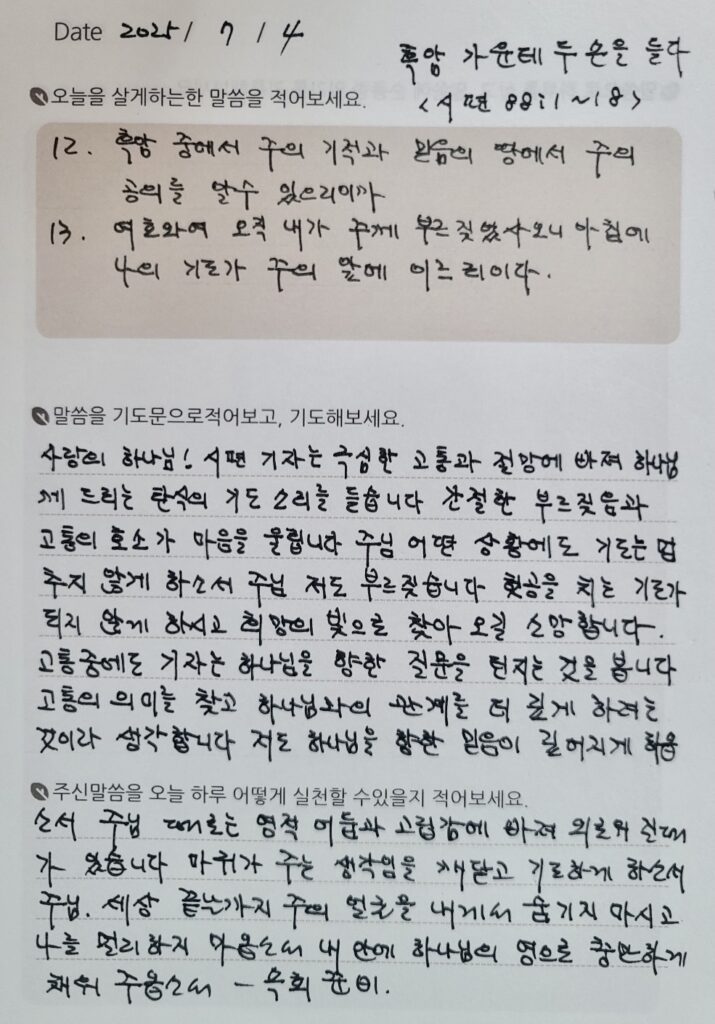 Date 2025 / 7 / 14
흑암 가운데 두 손을 들다
오늘을 살게하는한 말씀을 적어보세요.
<시편 88:1~18>
12. 흑암 중에서 주의 기적과 믿음의 땅에서 주의
공의를 알수 있으리이까
13. 여호와여 오직 내가 주께 부르짖었사오니 아침에
나의 기도가 주의 앞에 이르리이다.
말씀을 기도문으로적어보고, 기도해보세요.
사랑의 하나님! 시편 기자는 극심한 고통과 절망에 빠져 하나님
께 드리는 탄식의 기도 소리를 듣습니다 간절한 부르짖음과
고통의 호소가 마음을 울립니다 주님 어떤 상황에도 기도는 멈
추지 않게 하소서 주님 저도 부르짖습니다 헛공을 치는 기도가
되지 않게 하시고 희망의 빛으로 찾아 오길 소망합니다.
고통중에도 기자는 하나님을 향한 질문을 던지는 것을 봅니다
고통의 의미를 찾고 하나님과의 관계를 더 깊게 하려는
것이라 생각합니다 저도 하나님을 향한 믿음이 깊어지게 하옵
주신말씀을 오늘 하루 어떻게 실천할 수있을지 적어보세요.
소서 주님 때로는 영적 어둠과 고립감에 빠져 외로워 질때
가 있습니다 마귀가 주는 생각임을 깨닫고 기도하게 하소서
주님. 세상 끝날까지 주의 얼굴을 내게서 숨기지 마시고
나를 멀리하지 마옵소서 내 안에 하나님의 영으로 충만하게
채워 주옵소서 -